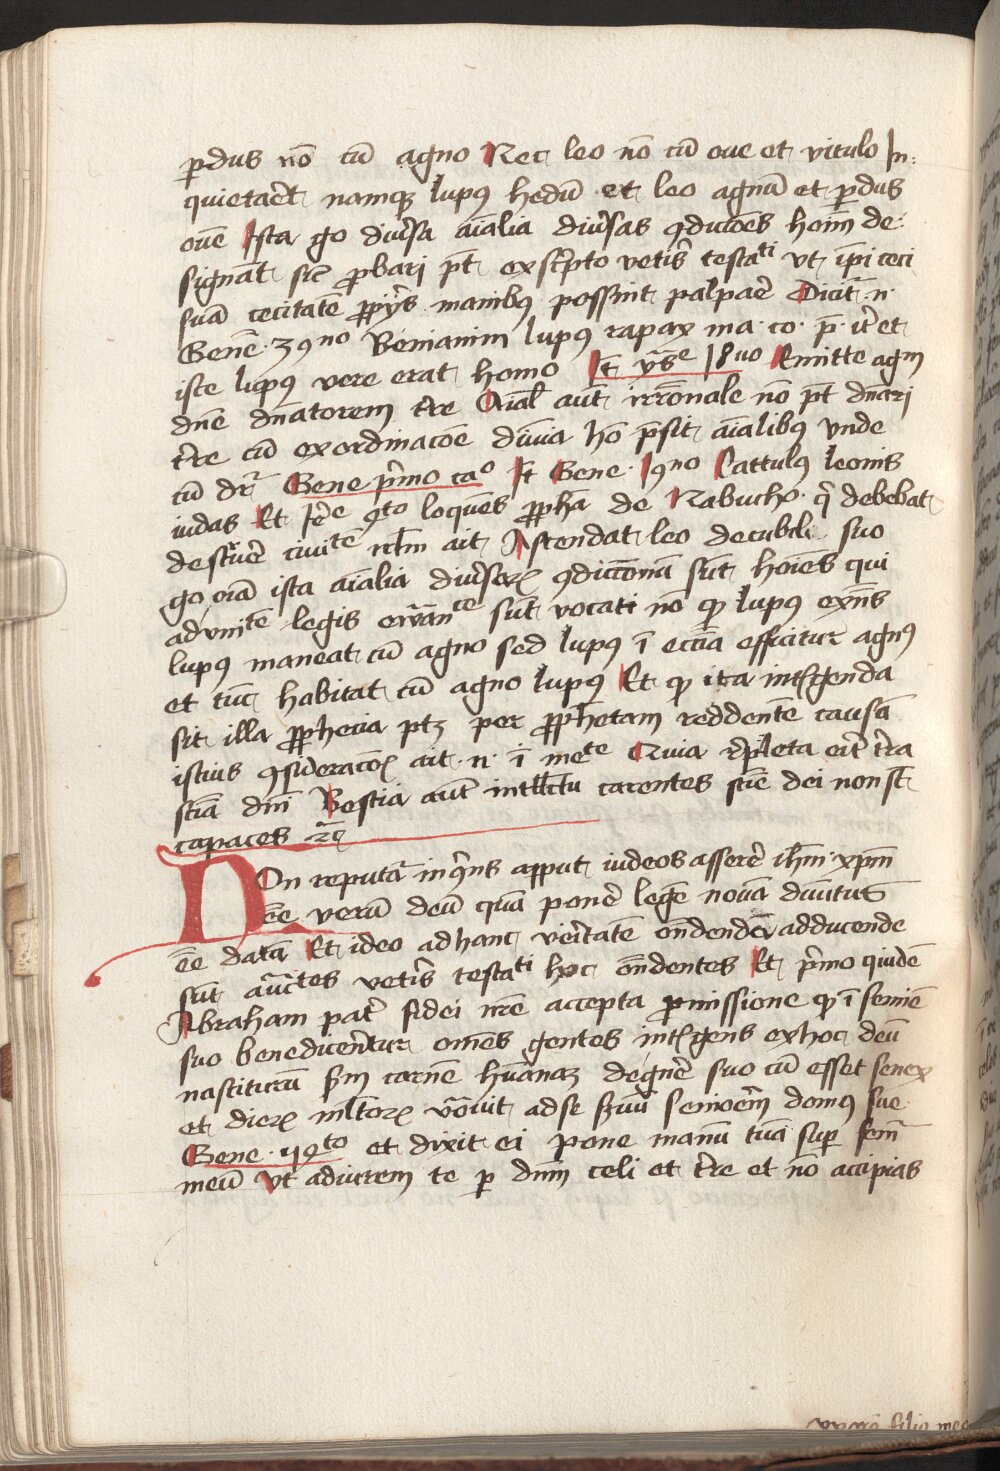 ꝑdus nō cū agno Nec leo nō cū oue et vitulo In⸗
quietar̄t namqꝫ lupꝰ hedū et leo agnū et ꝑdus
ouē Ista g̊o diu̾sa aīalia diu̾sas ꝯdicōes hoīm de⸗
signāt sic̄ ꝓbari pt̄ ex sc̾pto vetis̾ testati vt ip̄i ceci
suā cecitatē ꝓprijs manibꝰ possint palpar̄e Dicit̾ .n.
Gene. 39no Beniamin lupꝰ rapax ma. co. p̄. it̾ et
iste lupꝰ vere erat homo It̄ ysae 18uo Emitte agm̄
dn̄e dn̄atorem t̾re Aīal aūt irrōnale nō pt̄ dn̄ari
t̾re cū ex ordinacōe diuīa hō p̄sit aīalibꝰ vnde
cū dr̄ Gene p̾mo cao It̄ Gene. 19no Cattulꝰ leonis
iudas Et Ieree 4to loquēs ꝓpha de Nabucho. q̾ debebat
destrue̾ ciuitē irl̄m ait Ascendat leo de cubili suo
g̊o oīa ista aīalia diu̾saꝝ ꝯdicionū sūt hoīes qui
ad vnitē legis ewāce sūt vocati nō qꝫ lupꝰ exn̄s
lupꝰ maneat cū agno sed lupꝰ ī ecc̄ia efficitur agnꝰ
et tūc habitat cū agno lupꝰ Et qꝫ ita intl̄genda
sit illa ꝓphecia ptꝫ per ꝓphetam reddentē causā
istius ꝯsideracōꝫ ait .n. Quia rep̾leta erit t̾ra
sciā dn̄i Bestia aūt intll̄ctu carentes scīe dei non st̄
capaces ⁊c̄
NOn reputā in q̾ns apput iudeos asserē ihm̄ xpm̄
eē̄ verū deū quā ponē legē nouā diuīitus
eē̄ datā Et ideo ad hanc veri̾tatē on̄dendā adducende
sūt auctes vetis̾ testati hoc on̄dentes Et p̾mo quidē
Abraham pat̾ fidei nr̄e accepta ꝓmissione qꝫ ī semīe
suo benedicen̄tur om̄es gentes intl̄gens ex hoc deū
nasciturū scd̄m carnē humanā de gn̄e suo cū esset senex
et dieꝝ ml̄toꝝ vo̾cauit ad se s̾uū seniorē domꝰ sue
Gene. 24to et dixit ei pone manū tuā sup̱ fem̾
meū Vt adiurem te ꝑ dn̄m celi et t̾re et nō accipias
vxorē filio meo